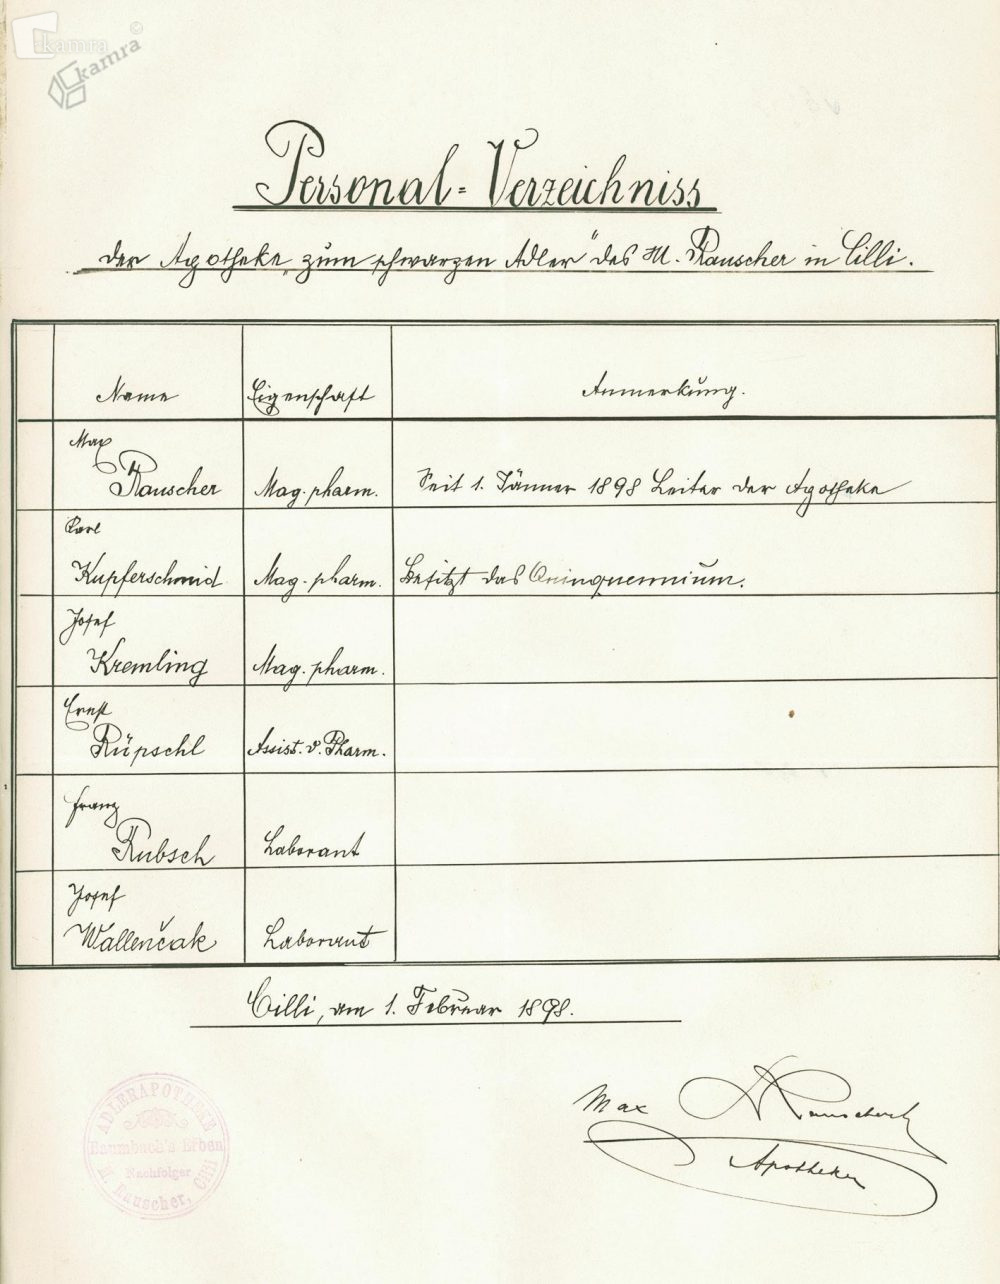 kamra
kamra
Personal-Verzeichniss
der Apotheke „zum schwarzen Adler" des M. Rauscher in Cilli.
Name Eigenschaft Anmerkung.
Max
Rauscher Mag. pharm. Seit 1. Jänner 1898 Leiter der Apotheke
Carl
Kupferschmid Mag. pharm. Besitzt das Quinquennium.
Josef
Kremling Mag. pharm.
Ernst
Rüpschl Assist. d. Pharm.
Franz
Rubsch Laborant
Josef
Wallenčak Laborant
Cilli, am 1. Februar 1898.
Max Rauscher
Apotheker
ADLERAPOTHEKE
Baumbach's Erben
Nachfolger
M. Rauscher, Cilli